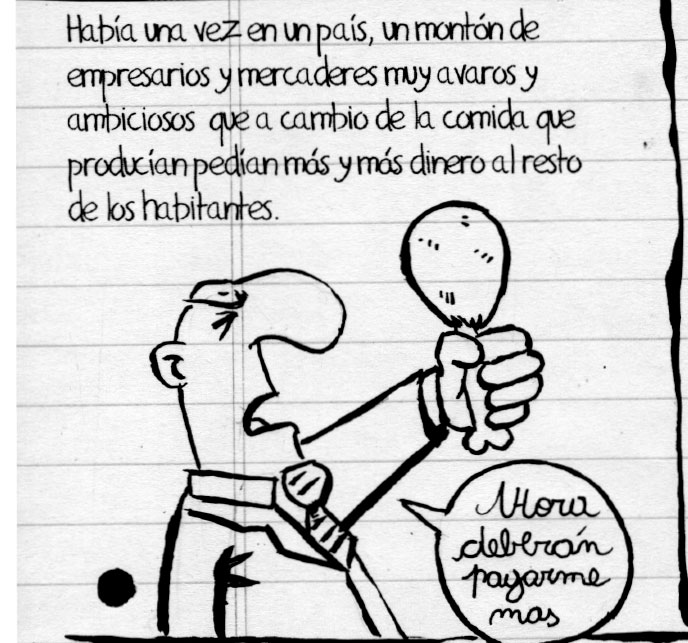 Había una vez en un país, un montón de
empresarios y mercaderes muy avaros y
ambiciosos que a cambio de la comida que
producían pedían más y más dinero al resto
de los habitantes.
Ahora
deberán
pagarme
mas